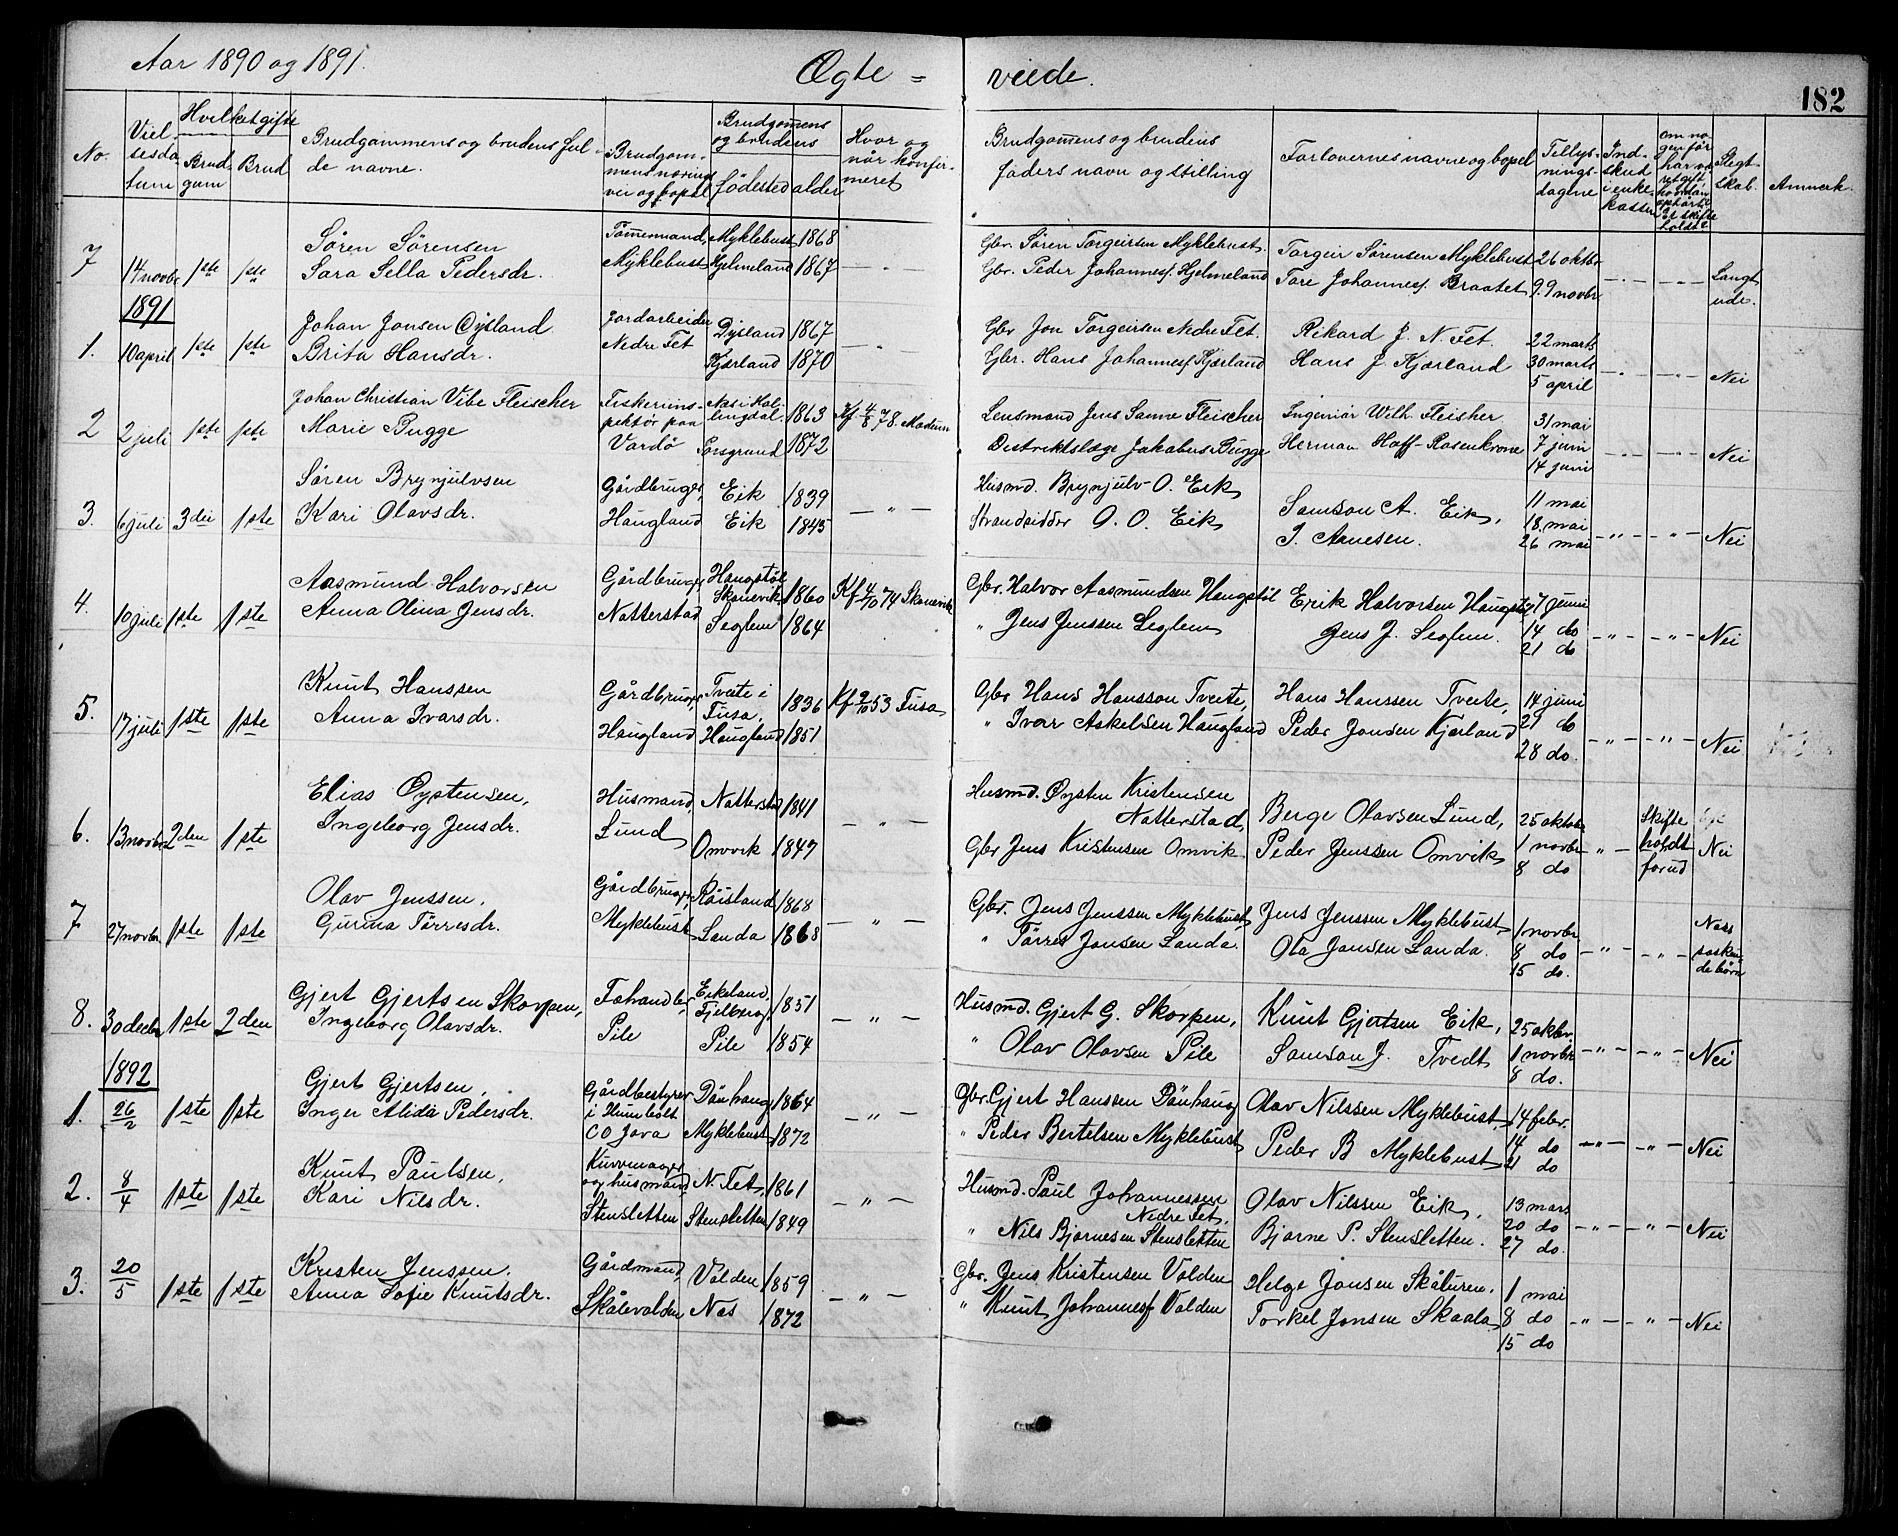 Aar 1890 og 1891.
Ægte = viede.
182
No.
Viel-
sesda-
tum
Hvilket gifte
Brud-
gum
Brud
Brudgommens og brudens ful-
de navne.
Brudgom-
mens nærings
vei og bopæl
Brudgomens
og brudens
fødested
alder
Hvor og
når konfir-
meret
Brudgomens og brudens
faders navn og stilling
Forlovernes navne og bopel
Tillys-
nings-
dagene
Ind-
skud
i enke-
kassen
om no-
gen før
har væ
ret gift
hvordan
ophørte
Er skifte
holdt?
Slegt-
skab.
Anmerk.
7 14 novbr 1ste 1ste Søren Sørensen Tømermand, Myklebust 1868 Gbr. Søren Torgeirsen Myklebust. Torgeir Sørensen Myklebust 26 oktbr
Sara Sella Pedersdr. Myklebust Hjelmeland 1867 — " — Gbr. Peder Johannesf. Hjelmeland Tore Johannesf. Braatet 9. 9 novbr Langt
ude.
1891
1. 10 april 1ste 1ste Johan Jonsen Øysland Jordarbeider Øysland 1867 Gbr Jon Torgeirsen Nedre Fet. Rikard J. N. Fet. 22 marts
Brita Hansdr. Nedre Fet Kjærland 1870 — " — Gbr. Hans Johannesf. Kjærland Hans J. Kjærland 30 marts
5 april Nei
2 2 juli 1ste 1ste Johan Christian Vibe Fleischer Fiskeriins- Næs i Hal- 1863 Kf 4/8 78. Modum Lensmand Jens Sanne Fleischer Ingeniør Wilh. Fleisher 31 mai
Marie Bugge pektør paa lingdal
Vardø Porsgrund 1872 Distriktslæge Jakobus Bugge Herman Hoff-Rosenkrone 7 juni
14 juni Nei
3. 6 juli 3die 1ste Søren Brynjulvsen Gårdbruger, Eik 1839 Husmd. Brynjulv O. Eik Samson A. Eik, 11 mai
Kari Olavsdr. Haugland Eik 1845 — " — Strandsidder O. O. Eik J. Aanesen. 18 mai
26 mai — " — — " — Nei
4. 10 juli 1ste 1ste Aasmund Halvorsen Gårdbruger Haugstøl 1860 Kf 4/10 74 Skonevik Gbr. Halvor Aasmundsen Haugstøl Erik Halvorsen Haugstøl 7 juni
Skonevik
Anna Olina Jensdr. Natterstad Seglem 1864 " Jens Jenssen Seglem Jens J. Seglem. 14 do
21 do — " — — " — Nei
5. 17 juli 1ste 1ste Knut Hanssen Gårdbruger Tveite i 1836 Kf 2/10 53 Fusa Gbr Hans Hansson Tveite, Hans Hanssen Tveite, 14 juni
Fusa,
Anna Ivarsdr. Haugland Haugland 1851 " Ivar Askelsen Haugland Peder Jonsen Kjærland 21 do
28 do. — " — " — Nei
6. 13 novbr. 2den 1ste Elias Øystensen, Husmand, Natterstad 1841 Husmd. Øysten Kristensen
Natterstad, Berge Olavsen Lund, 25 oktbr Skifte
Ingeborg Jensdr. Lund Omvik 1847 — " — Gbr Jens Kristensen Omvik Peder Jenssen Omvik 1 novbr — " — holdt Nei
8 do forud
7 27 novbr. 1ste 1ste Olav Jenssen. Gårdbruger, Røisland 1868 Gbr. Jens Jenssen Myklebust, Jens Jenssen Myklebust, 1 novbr
Gurina Tørresdr. Myklebust Landa 1868 — " — " Tørres Jonsen Landa. Ola Jonsen Landa. 8 do — " — — " —
15 do. Næs
søsken
debørn
8. 30 decbr 1ste 2den Gjert Gjertsen Skorpen, Fæhandler, Eikeland, 1851 Husmd. Gjert G. Skorpen, Knut Gjertsen Eik, 25 oktbr.
Fjelberg
Ingeborg Olavsdr. Pile Pile 1854 — " — " Olav Olavsen Pile Samson J. Tvedt 1 novbr
8 do. — " — — " — Nei
1892
1. 26/2 1ste 1ste Gjert Gjertsen, Gårdbestyrer Dønhaug 1864 Gbr. Gjert Hanssen Dønhaug Olav Nilssen Myklebust, 14 febr.
Inger Alida Pedersdr. i Humbolt
CO Jova Myklebust 1872 — " — " Peder Bertelsen Myklebust Peder B Myklebust 14 do
21 do — " — — " — Nei
2. 8/4 1ste 1ste Knut Paulsen, Kurvemager
og husmand, N. Fet, 1861 Husmd. Paul Johannessen
Nedre Fet, Olav Nilssen Eik, 13 mars
Kari Nilsdr. Stensletten Stensletten 1849 — " — " Nils Bjørnesen Stensletten Bjørne P. Stensletten. 20 do
27 do. — " — — " — Nei
3. 20/5 1ste 1ste Kristen Jenssen. Gårdmand, Valden 1859 Gbr. Jens Kristensen Valden Helge Jonsen Skåluren. 1 mai
Anna Sofie Knutsdr. Skålevalden Næs 1872 — " — " Knut Johannesf. Valden Torkel Jonsen Skaala 8 do
15 do — " — — " — Nei